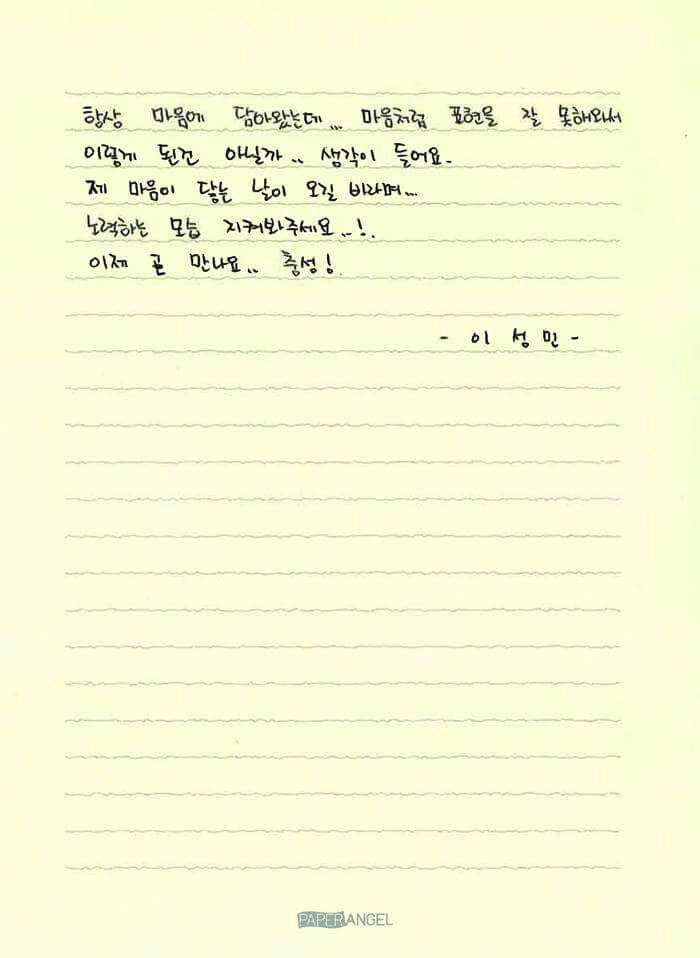 항상 마음에 담아왔는데... 마음처럼 표현을 잘 못해와서
이렇게 된건 아닐까.. 생각이 들어요.
제 마음이 닿는 날이 오길 바라며...
노력하는 모습 지켜봐주세요..!.
이제 곧 만나요.. 충성!
- 이 성 민 -
PAPER ANGEL